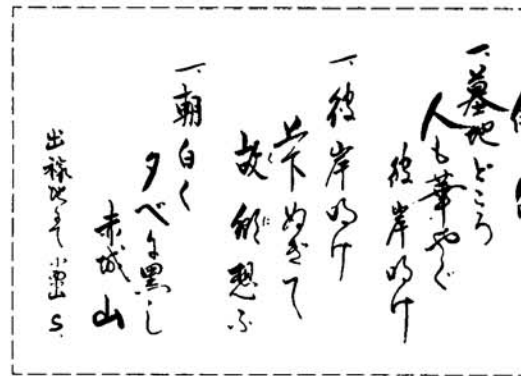 一、墓地どころ
人も華やぐ
彼岸明け
一、彼岸明け
上下ぬぎて
故郷想ふ
一、朝白く
夕べに黒し
赤城山
出稼地にて 小山 S.